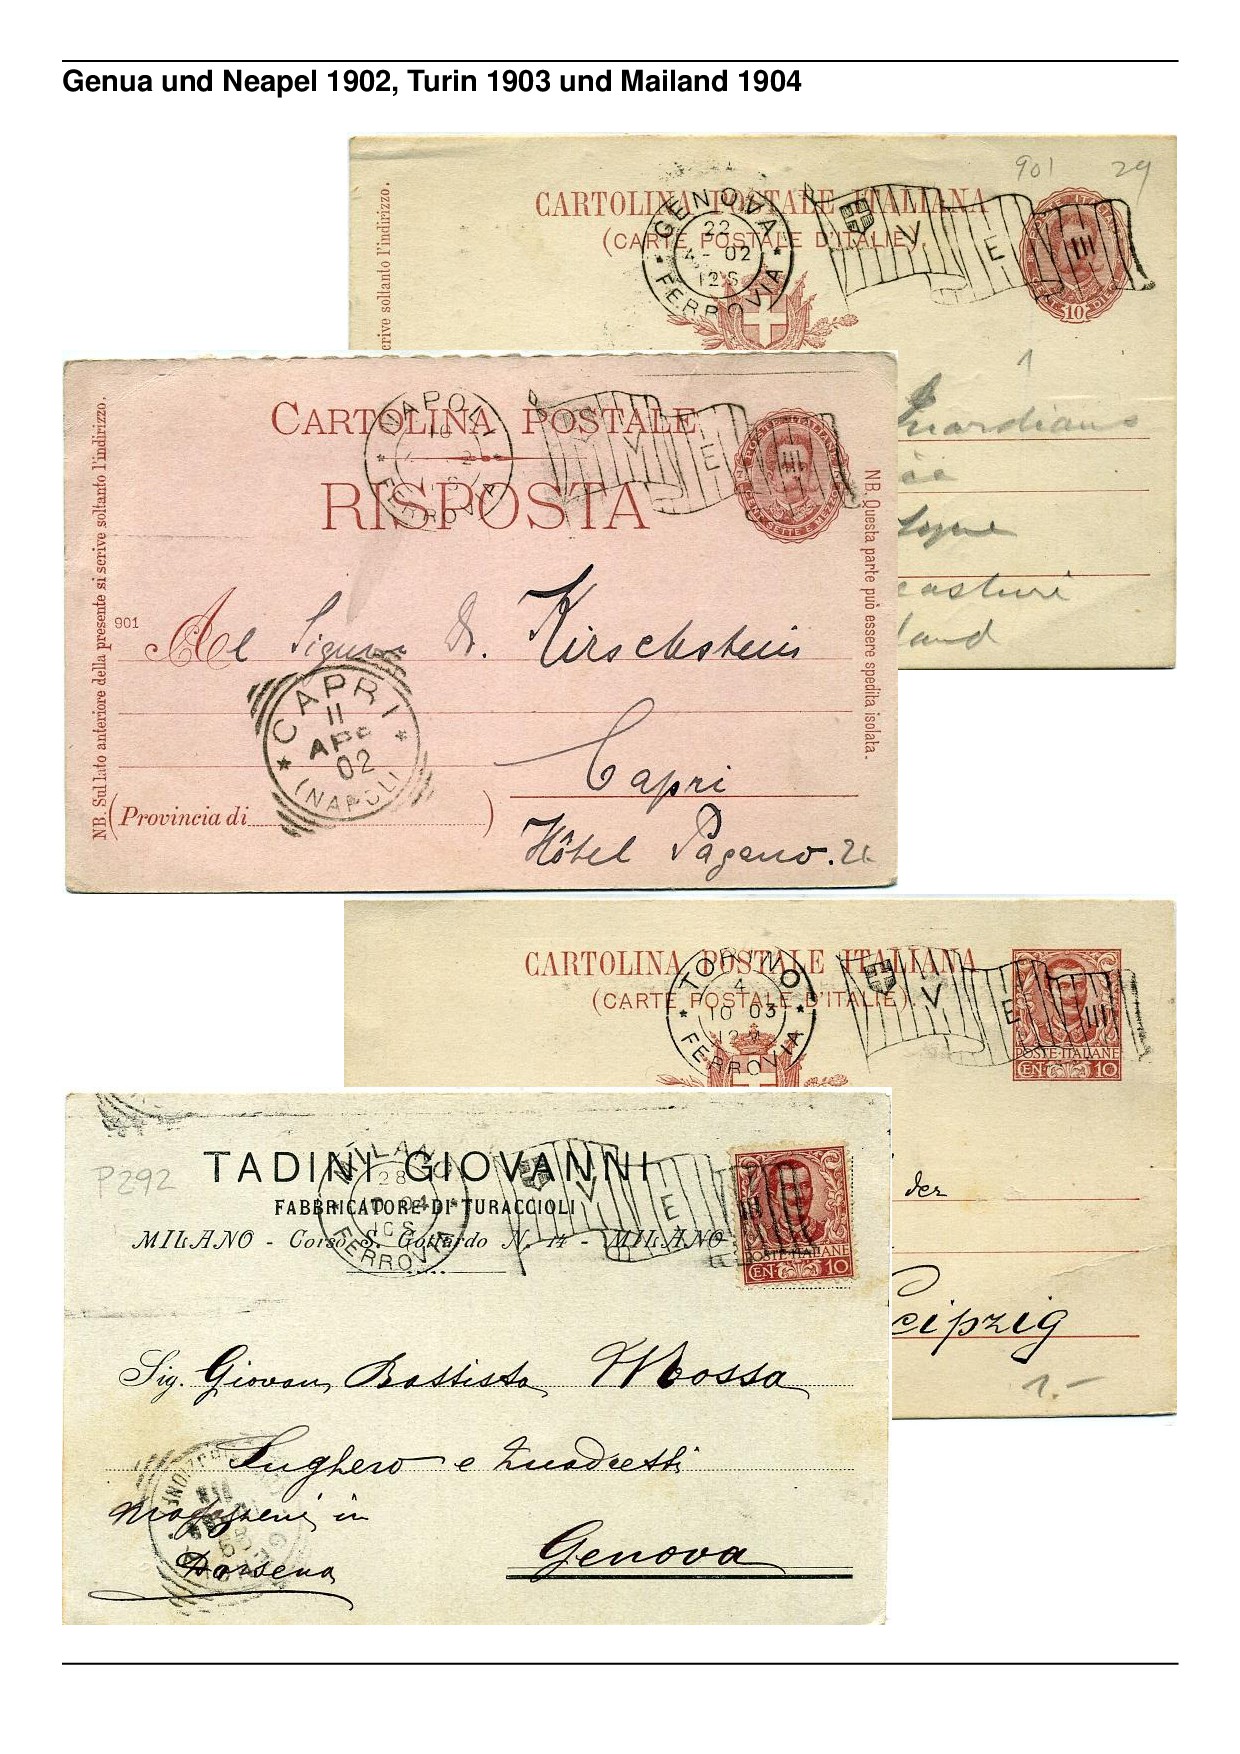 Genua und Neapel 1902, Turin 1903 und Mailand 1904
901 29
CARTOLINA POSTALE ITALIANA
(CARTE POSTALE D'ITALIE)
GENOVA
22
4- 02
12S
* FERROVIA *
V E III
10
crive soltanto l'indirizzo.
1
Guardians
land
CARTOLINA POSTALE
RISPOSTA
NAPOLI
10
* FERROVIA *
V E III
POSTE ITALIANE
NB. Sul lato anteriore della presente si scrive soltanto l'indirizzo.
NB. Questa parte può essere spedita isolata.
901
Al Signor Dr. Kirschstein
CAPRI
11
APR
02
(NAPOLI)
Capri
(Provincia di )
Hôtel Pagano.
CARTOLINA POSTALE ITALIANA
(CARTE POSTALE D'ITALIE)
TORINO
4
10 03
* FERROVIA *
V E III
POSTE·ITALIANE
CEN. 10
der
Leipzig
1.-
P292
TADINI GIOVANNI
FABBRICATORE DI TURACCIOLI
MILANO - Corso S. Gottardo N. 14 - MILANO
MILANO
28
10 04
10S
FERROVIA
V E III
POSTE·ITALIANE
CEN. 10
Sig. Giovan Battista Mossa
Sughero e Quadretti
Magazzeni in
Darsena
Genova